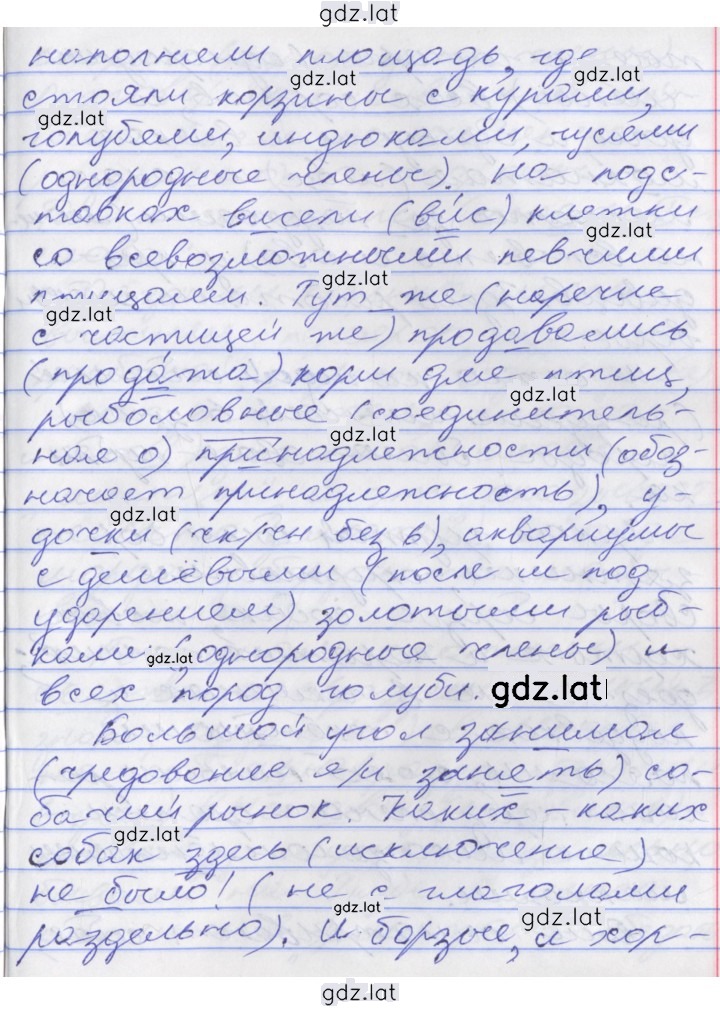 gdz.lat
наполняли площадь, где
gdz.lat
стояли корзины с курами,
gdz.lat
голубями, индюками, гусями
(однородные члены). На подс-
тавках висели (вис) клетки
gdz.lat
со всевозможными певчими
gdz.lat
птицами. Тут же (наречие
gdz.lat
с частицей же) продавались
(продажа) корм для птиц,
gdz.lat
рыболовные (соединитель-
gdz.lat
ная о) принадлежности (обоз-
начает принадлежность), у-
gdz.lat
дочки (чк/чн без ь), аквариумы
с дешёвыми (после ш под
ударением) золотыми рыб-
ками (однородные члены) и
gdz.lat
всех пород голуби.
gdz.lat
Большой угол занимал
(чредование я/и занять) со-
бачий рынок. Каких-каких
gdz.lat
собак здесь (исключение)
не было! (не с глаголами
gdz.lat
раздельно). И борзые, и хор-
gdz.lat
gdz.lat